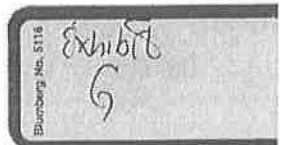 Blumberg No. 5116
Exhibit
G